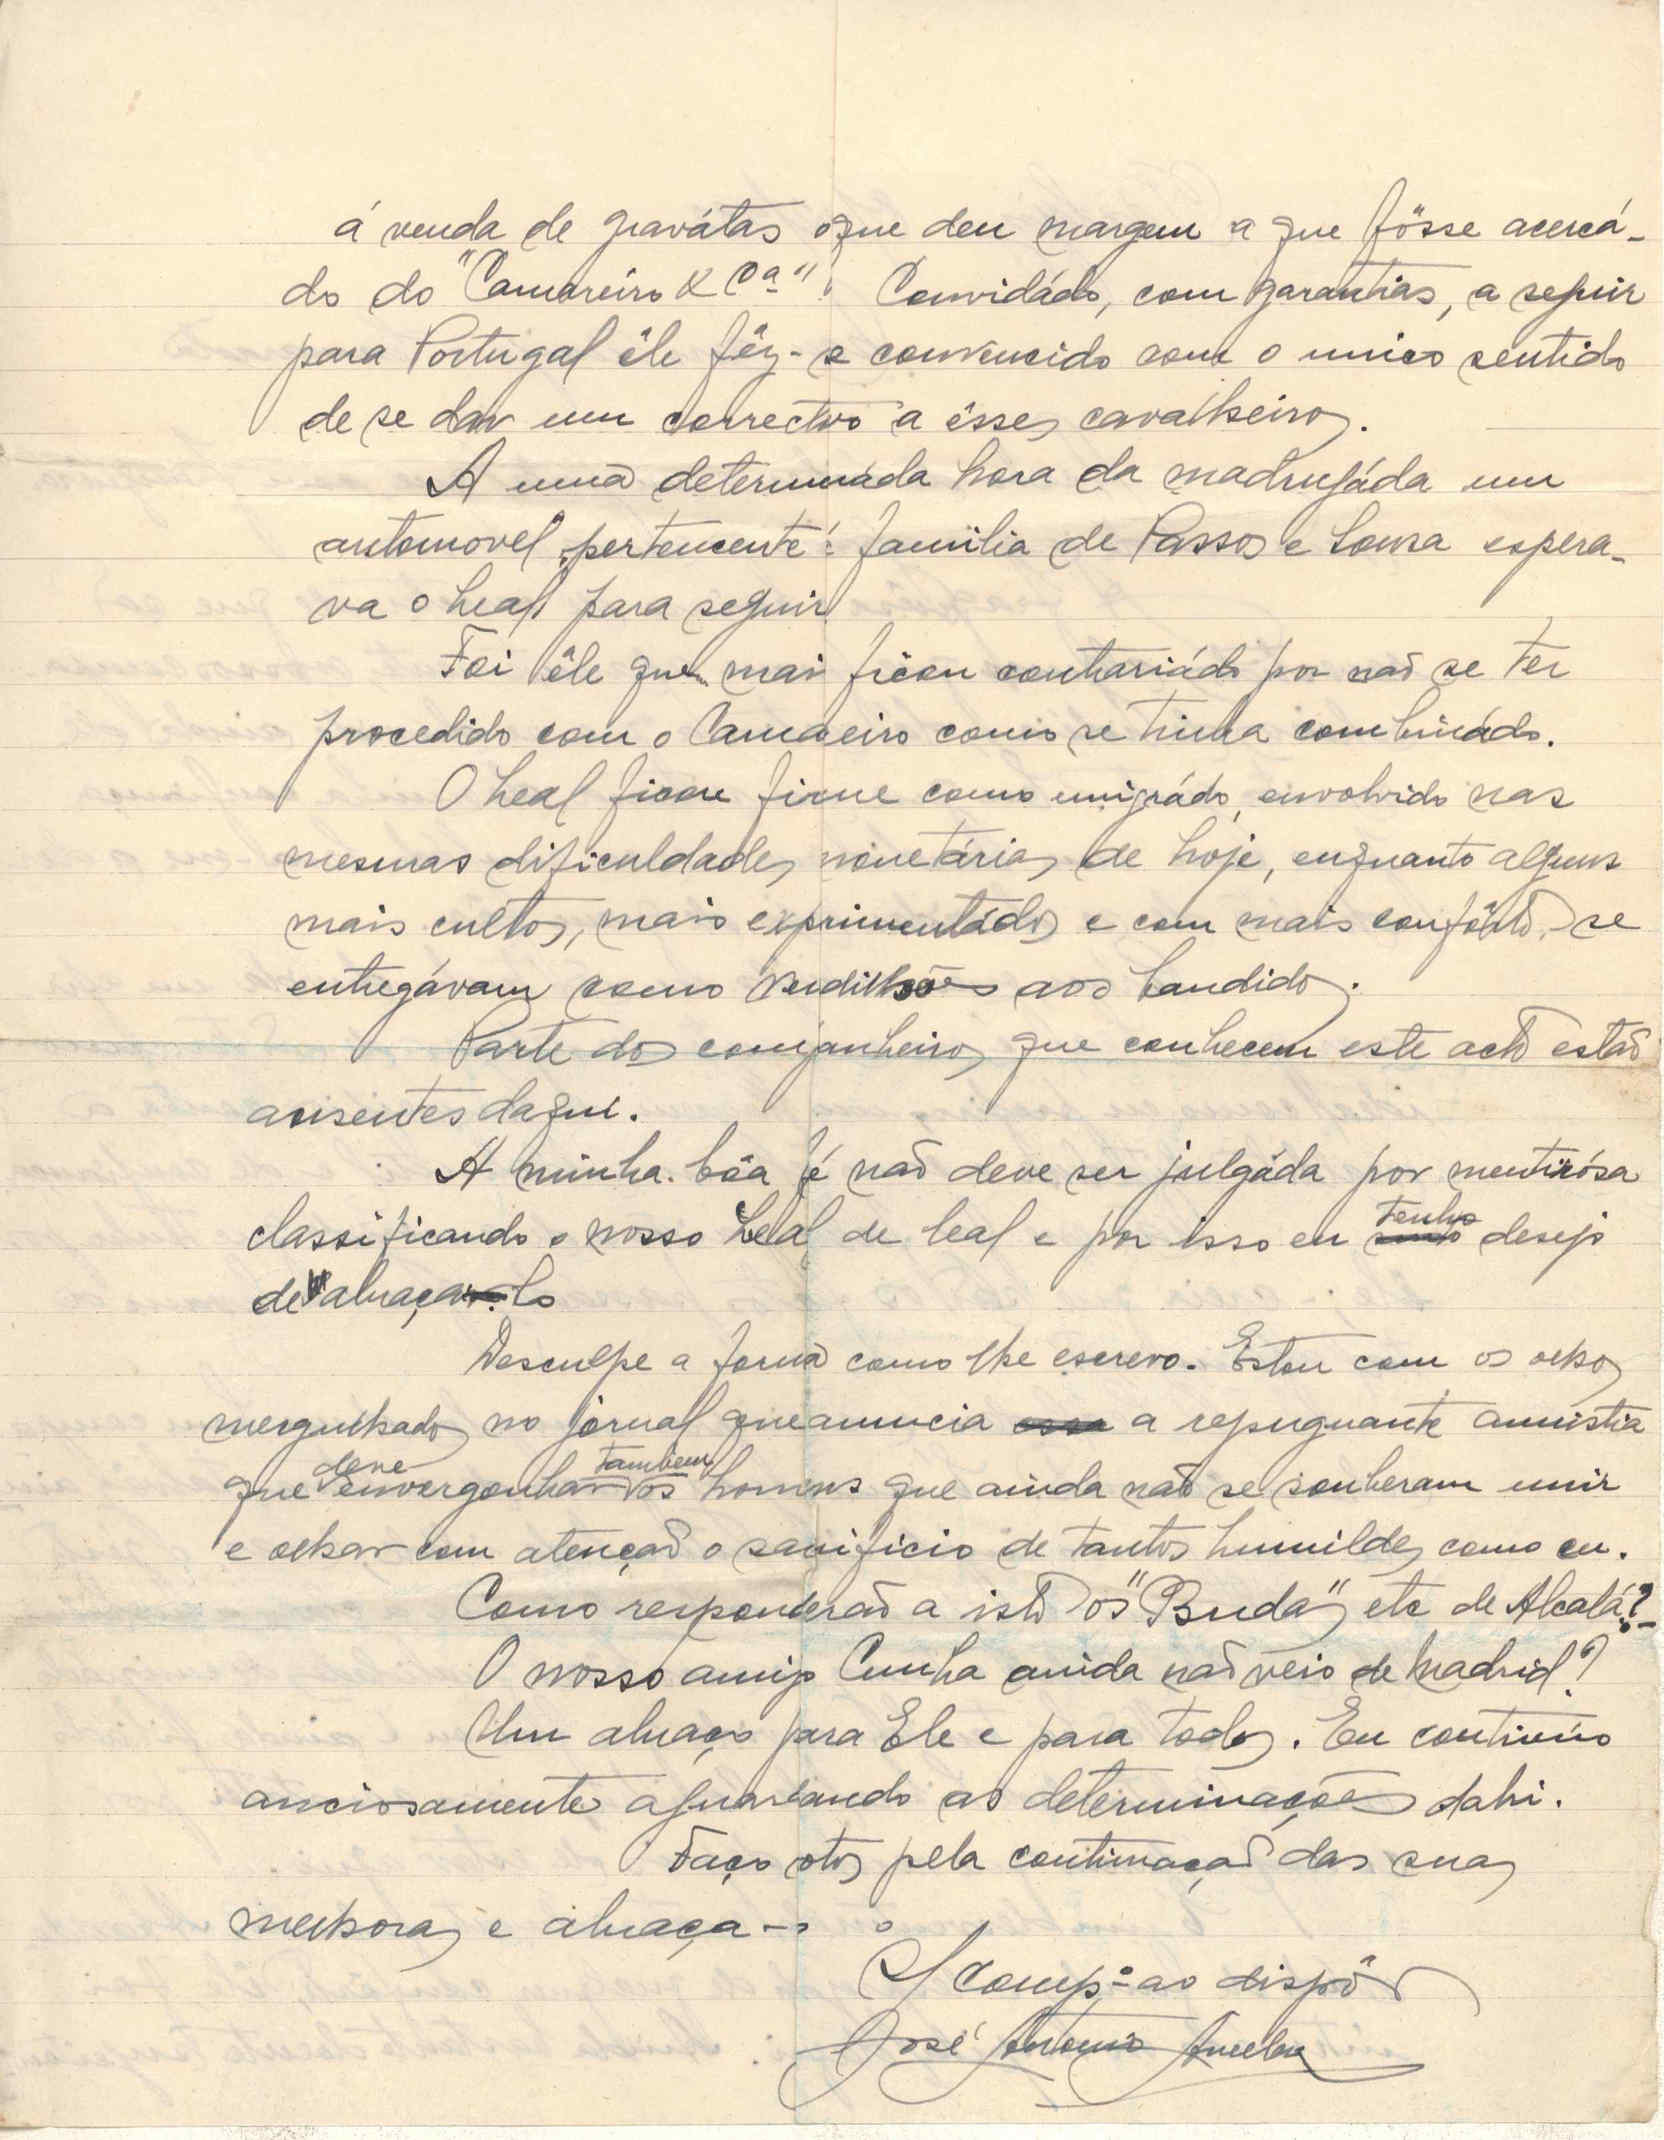 á venda de gravátas o que deu margem a que fôsse acercá-
do do "Camareiro & Cª". Convidádo, com garantias, a seguir
para Portugal êle fêz-se convencido com o unico sentido
de se dar um correctivo a êsses cavalheiros.
A uma determináda hora da madrugáda um
automovel pertencente á familia de Passos e Sousa espera-
va o Leal para seguir.
Foi êle que mais ficou contrariádo por não se ter
procedido com o Camareiro como se tinha combinádo.
O Leal ficou firme como emigrádo, envolvido nas
mesmas dificuldades monetárias de hoje, enquanto alguns
mais cultos, mais exprimentádos e com mais confôrto, se
entregávam como vendilhões aos bandidos.
Parte dos companheiros que conhecem este acto estão
ausentes daqui.
A minha bôa fé não deve ser julgáda por mentirósa
classificando o nosso Leal de leal e por isso eu tenho desejo
de abraça-lo
Desculpe a forma como lhe escrevo. Estou com os olhos
mergulhados no jornal que anuncia a repugnante amnistia
que deve envergonhar tambem os homens que ainda não se souberam unir
e olhar com atenção o sacrificio de tantos humildes como eu.
Como responderão a isto os "Budas" etc de Alcalá?
O nosso amigo Cunha ainda não veio de Madrid?
Um abraço para Ele e para todos. Eu continúo
anciosamente aguardando as determinações dahi.
Faço votos pela continuação das suas
melhoras e abraça-o o
Comp.º ao dispôr
José Antonio